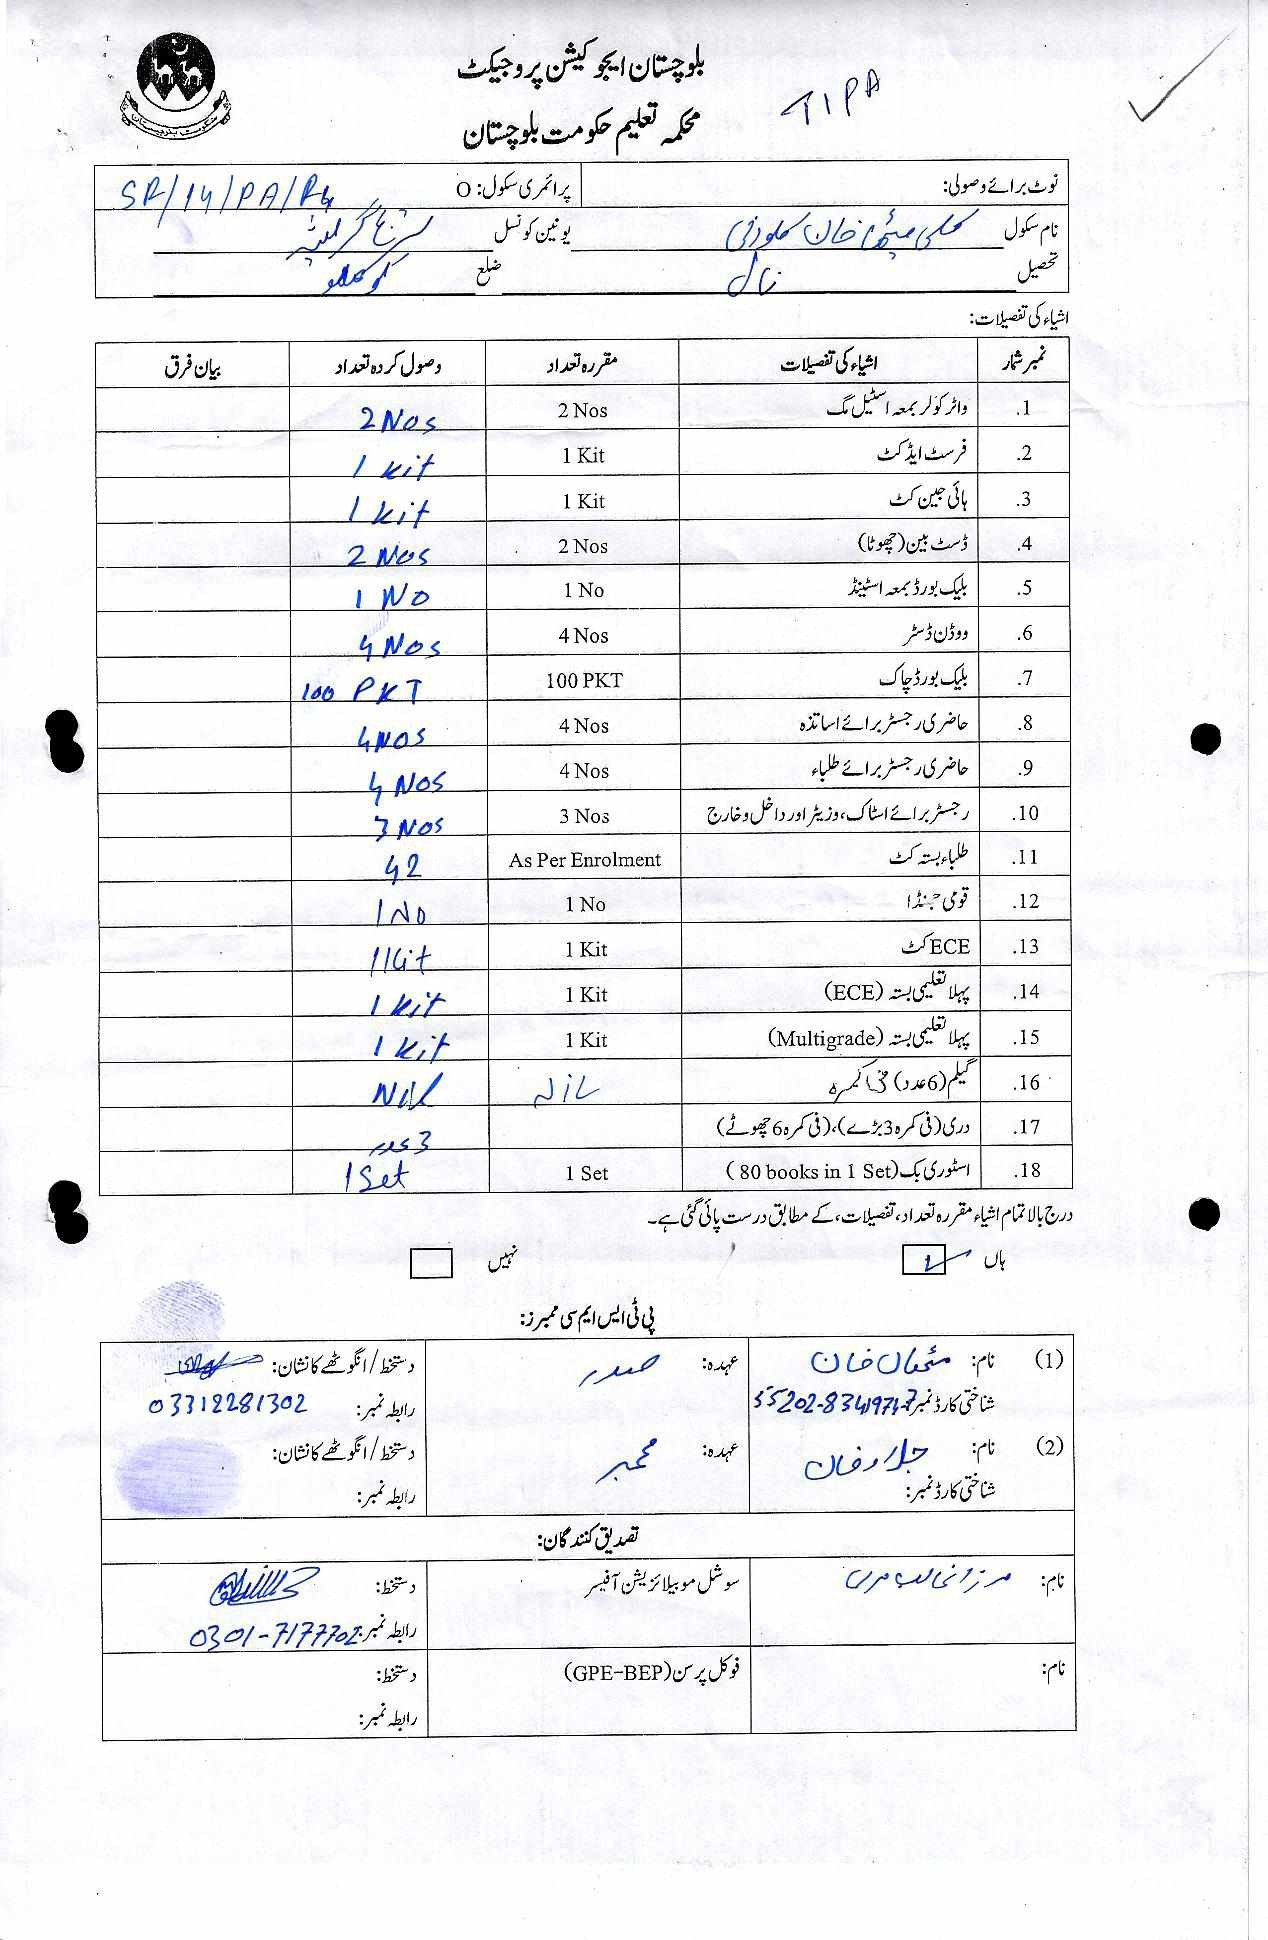 بلوچستان ایجوکیشن پروجیکٹ
محکمہ تعلیم حکومت بلوچستان
TIPA
نوٹ برائے وصولی: پرائمری سکول: O SR/14/PA/R4
نام سکول کلی مٹھا خان کلوزئی یونین کونسل
تحصیل ضلع کوہلو
اشیاء کی تفصیلات:
نمبر شمار اشیاء کی تفصیلات مقررہ تعداد وصول کردہ تعداد بیان فرق
1. واٹر کولر بمعہ اسٹیل مگ 2 Nos 2 Nos
2. فرسٹ ایڈ کٹ 1 Kit 1 kit
3. ہائی جین کٹ 1 Kit 1 kit
4. ڈسٹ بین (چھوٹا) 2 Nos 2 Nos
5. بلیک بورڈ بمعہ اسٹینڈ 1 No 1 No
6. ووڈن ڈسٹر 4 Nos 4 Nos
7. بلیک بورڈ چاک 100 PKT 100 PKT
8. حاضری رجسٹر برائے اساتذہ 4 Nos 4 Nos
9. حاضری رجسٹر برائے طلباء 4 Nos 4 Nos
10. رجسٹر برائے اسٹاک، وزیٹر اور داخل و خارج 3 Nos 3 Nos
11. طلباء بستہ کٹ As Per Enrolment 42
12. قومی جھنڈا 1 No 1 No
13. ECE کٹ 1 Kit 1 Kit
14. پہلا تعلیمی بستہ (ECE) 1 Kit 1 Kit
15. پہلا تعلیمی بستہ (Multigrade) 1 Kit 1 Kit
16. گیلم (6 عدد) فی کمرہ Nil
17. دری (فی کمرہ 3 بڑے)، (فی کمرہ 6 چھوٹے) 3 عدد
18. اسٹوری بک (80 books in 1 Set) 1 Set 1 Set
درج بالا تمام اشیاء مقررہ تعداد، تفصیلات، کے مطابق درست پائی گئی ہے۔
ہاں نہیں
پی ٹی ایس ایم سی ممبرز:
(1) نام: مٹھا خان عہدہ: صدر دستخط / انگوٹھے کا نشان:
شناختی کارڈ نمبر: رابطہ نمبر: 03312281302
(2) نام: عہدہ: ممبر دستخط / انگوٹھے کا نشان:
شناختی کارڈ نمبر: رابطہ نمبر:
تصدیق کنندگان:
نام: سوشل موبیلائزیشن آفیسر دستخط:
رابطہ نمبر: 0301-7177702
نام: فوکل پرسن (GPE-BEP) دستخط:
رابطہ نمبر: